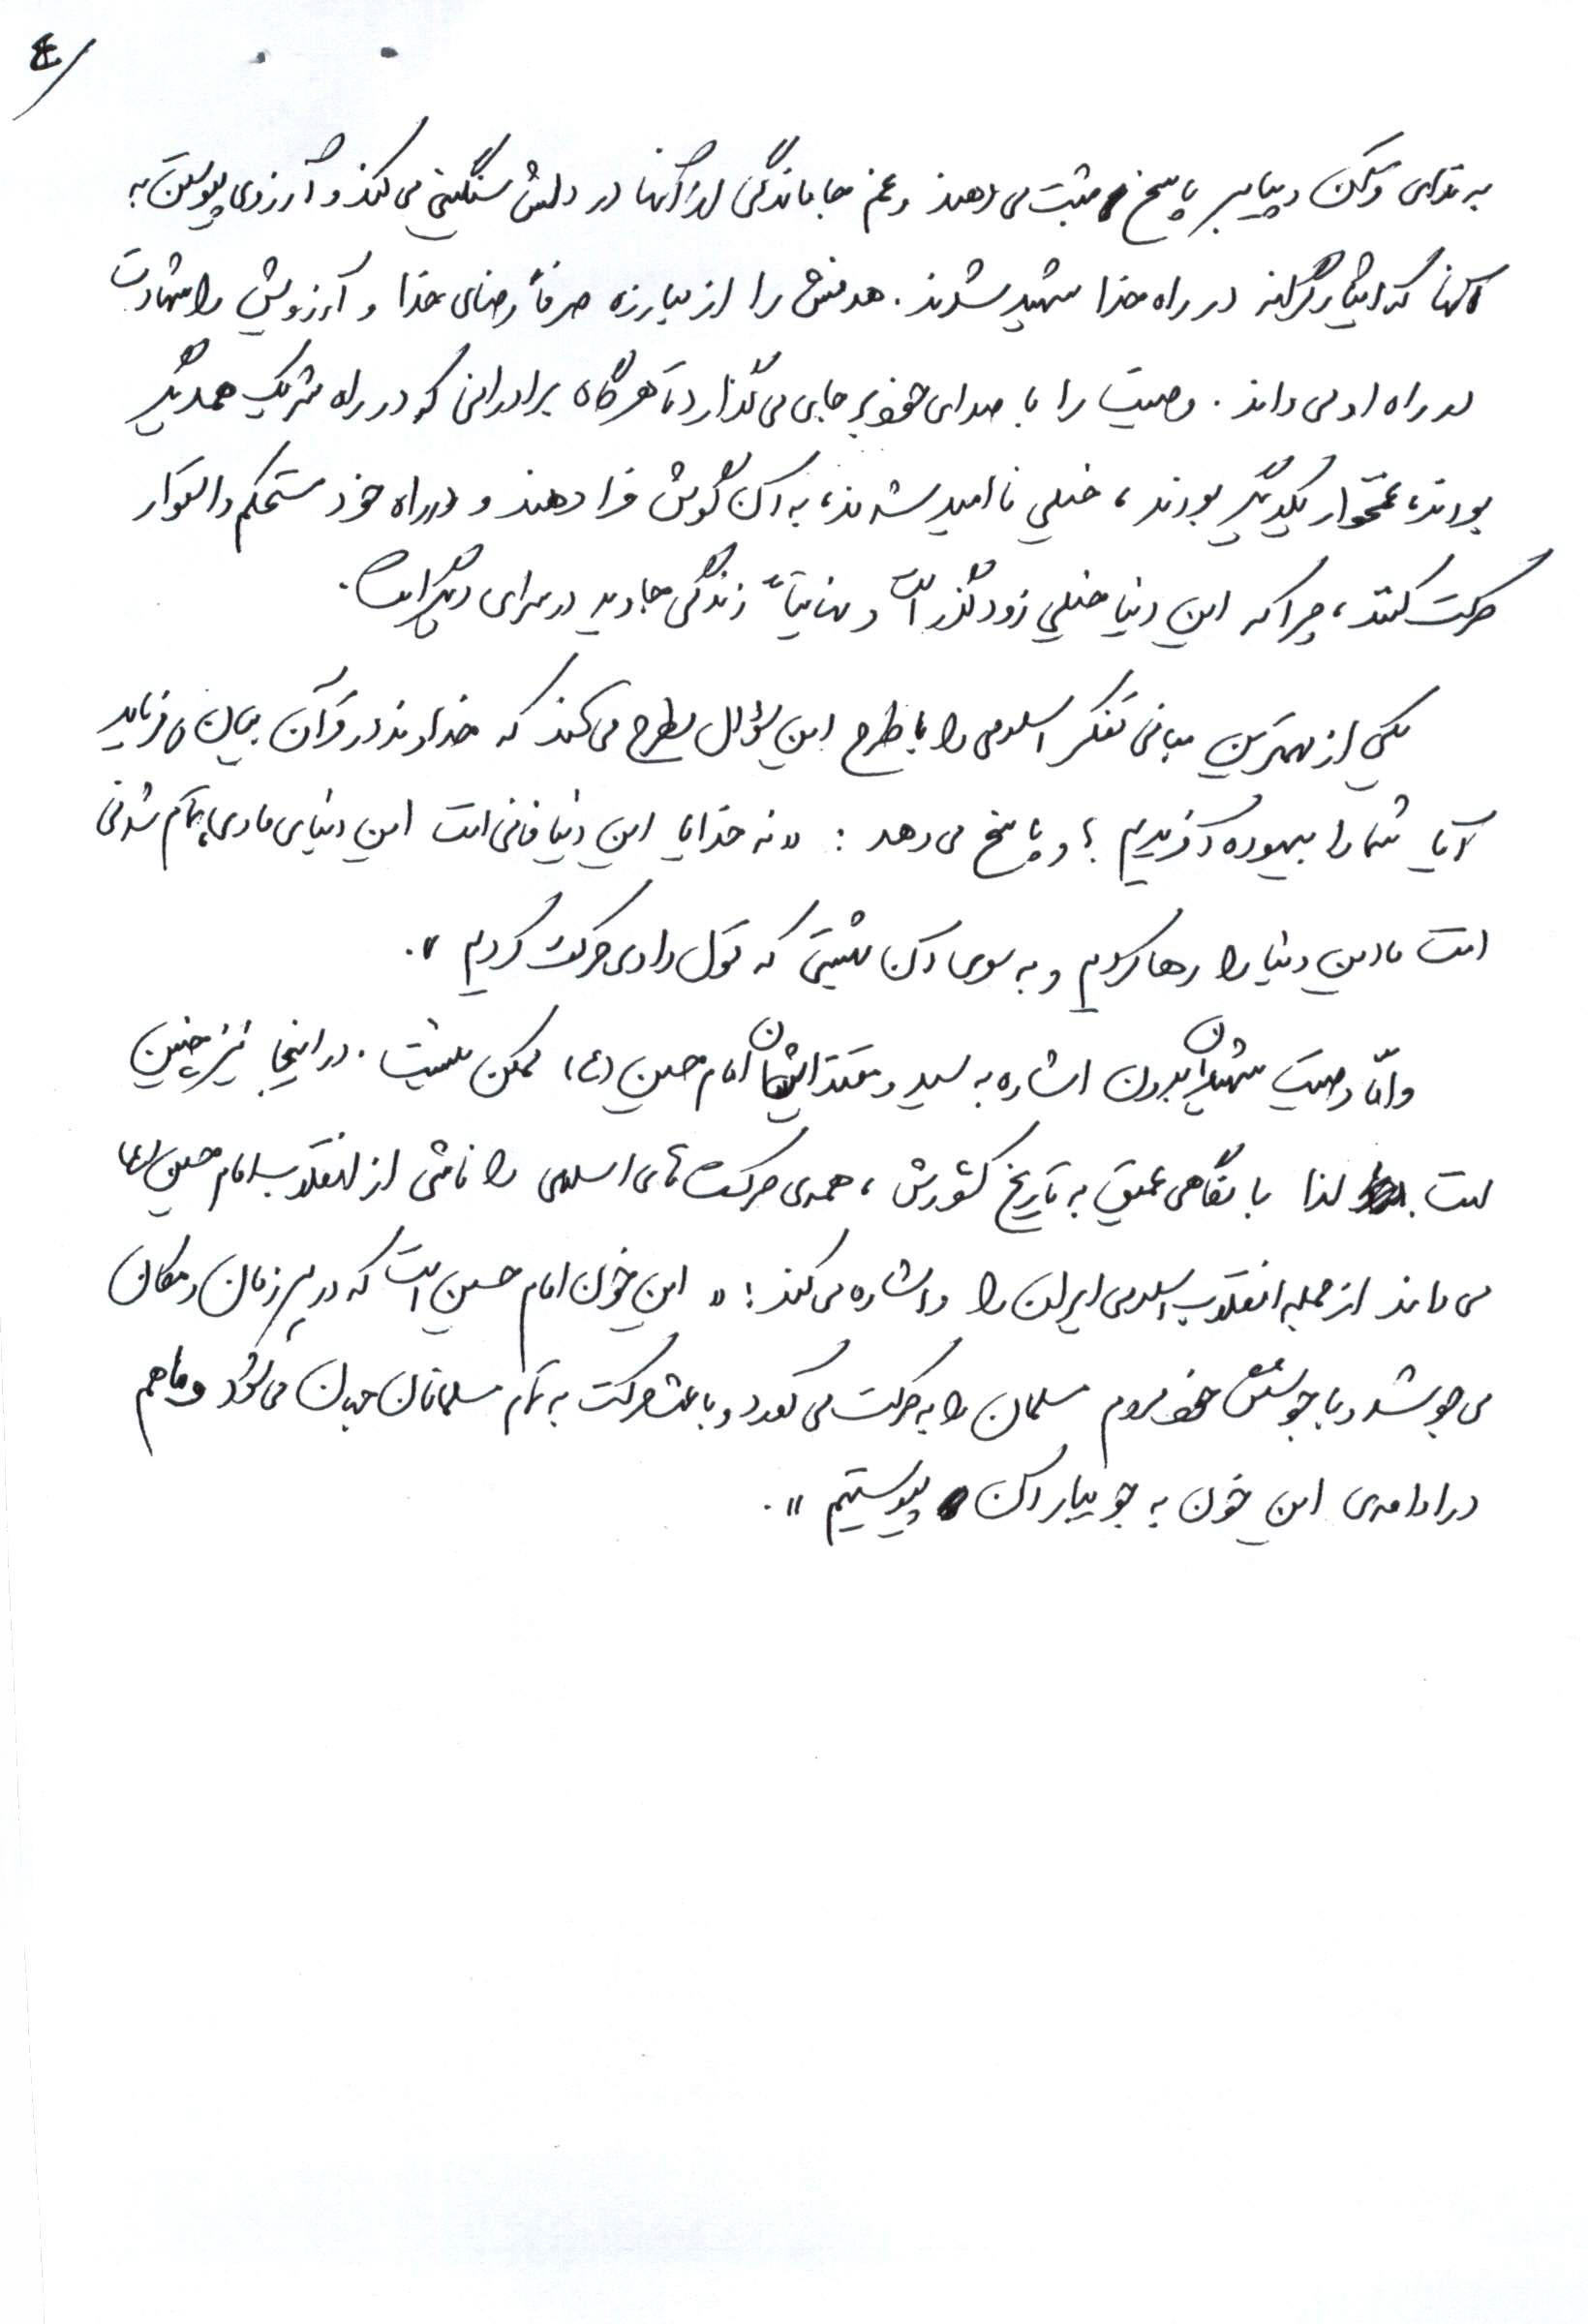 ۴/
به ندای قرآن و پیامبر پاسخ مثبت می دهند و غم جاماندگی از آنها در دلش سنگینی می کند و آرزوی پیوستن به
آنها که ایثارگرانه در راه خدا شهید شدند. هدفش را از مبارزه صرفاً رضای خدا و آرزویش را شهادت
در راه او می داند. وصیت را با صدای خود بر جای می گذارد تا هرگاه برادرانی که در راه شریک همدیگر
بودند، غمخوار یکدیگر بودند، خیلی ناامید شدند، به آن گوش فرا دهند و در راه خود مستحکم و استوار
حرکت کنند، چرا که این دنیا خیلی زودگذر است و نهایتاً زندگی جاوید در سرای دیگر است.
یکی از مهمترین مبانی تفکر اسلامی را با طرح این سؤال مطرح می کند که خداوند در قرآن بیان می فرماید
آیا شما را بیهوده آفریدیم؟ و پاسخ می دهد: «نه خدایا این دنیا فانی است این دنیای مادی، تمام شدنی
است ما این دنیا را رها کردیم و به سوی آن بهشتی که قول دادی حرکت کردیم».
و امّا وصیت شهیدان بدون اشاره به سید و مقتدایشان امام حسین (ع) ممکن نیست. در اینجا نیز چنین
است. لذا با نگاهی عمیق به تاریخ کشورش، همه‌ی حرکت های اسلامی را ناشی از انقلاب امام حسین (ع)
می داند از جمله انقلاب اسلامی ایران را و اشاره می کند: «این خون امام حسین است که در هر زمان و مکان
می جوشد و با جوشش خود مردم مسلمان را به حرکت می آورد و باعث حرکت به تمام مسلمانان جهان می شود و ما هم
در ادامه‌ی این خون به جویبار آن پیوستیم».